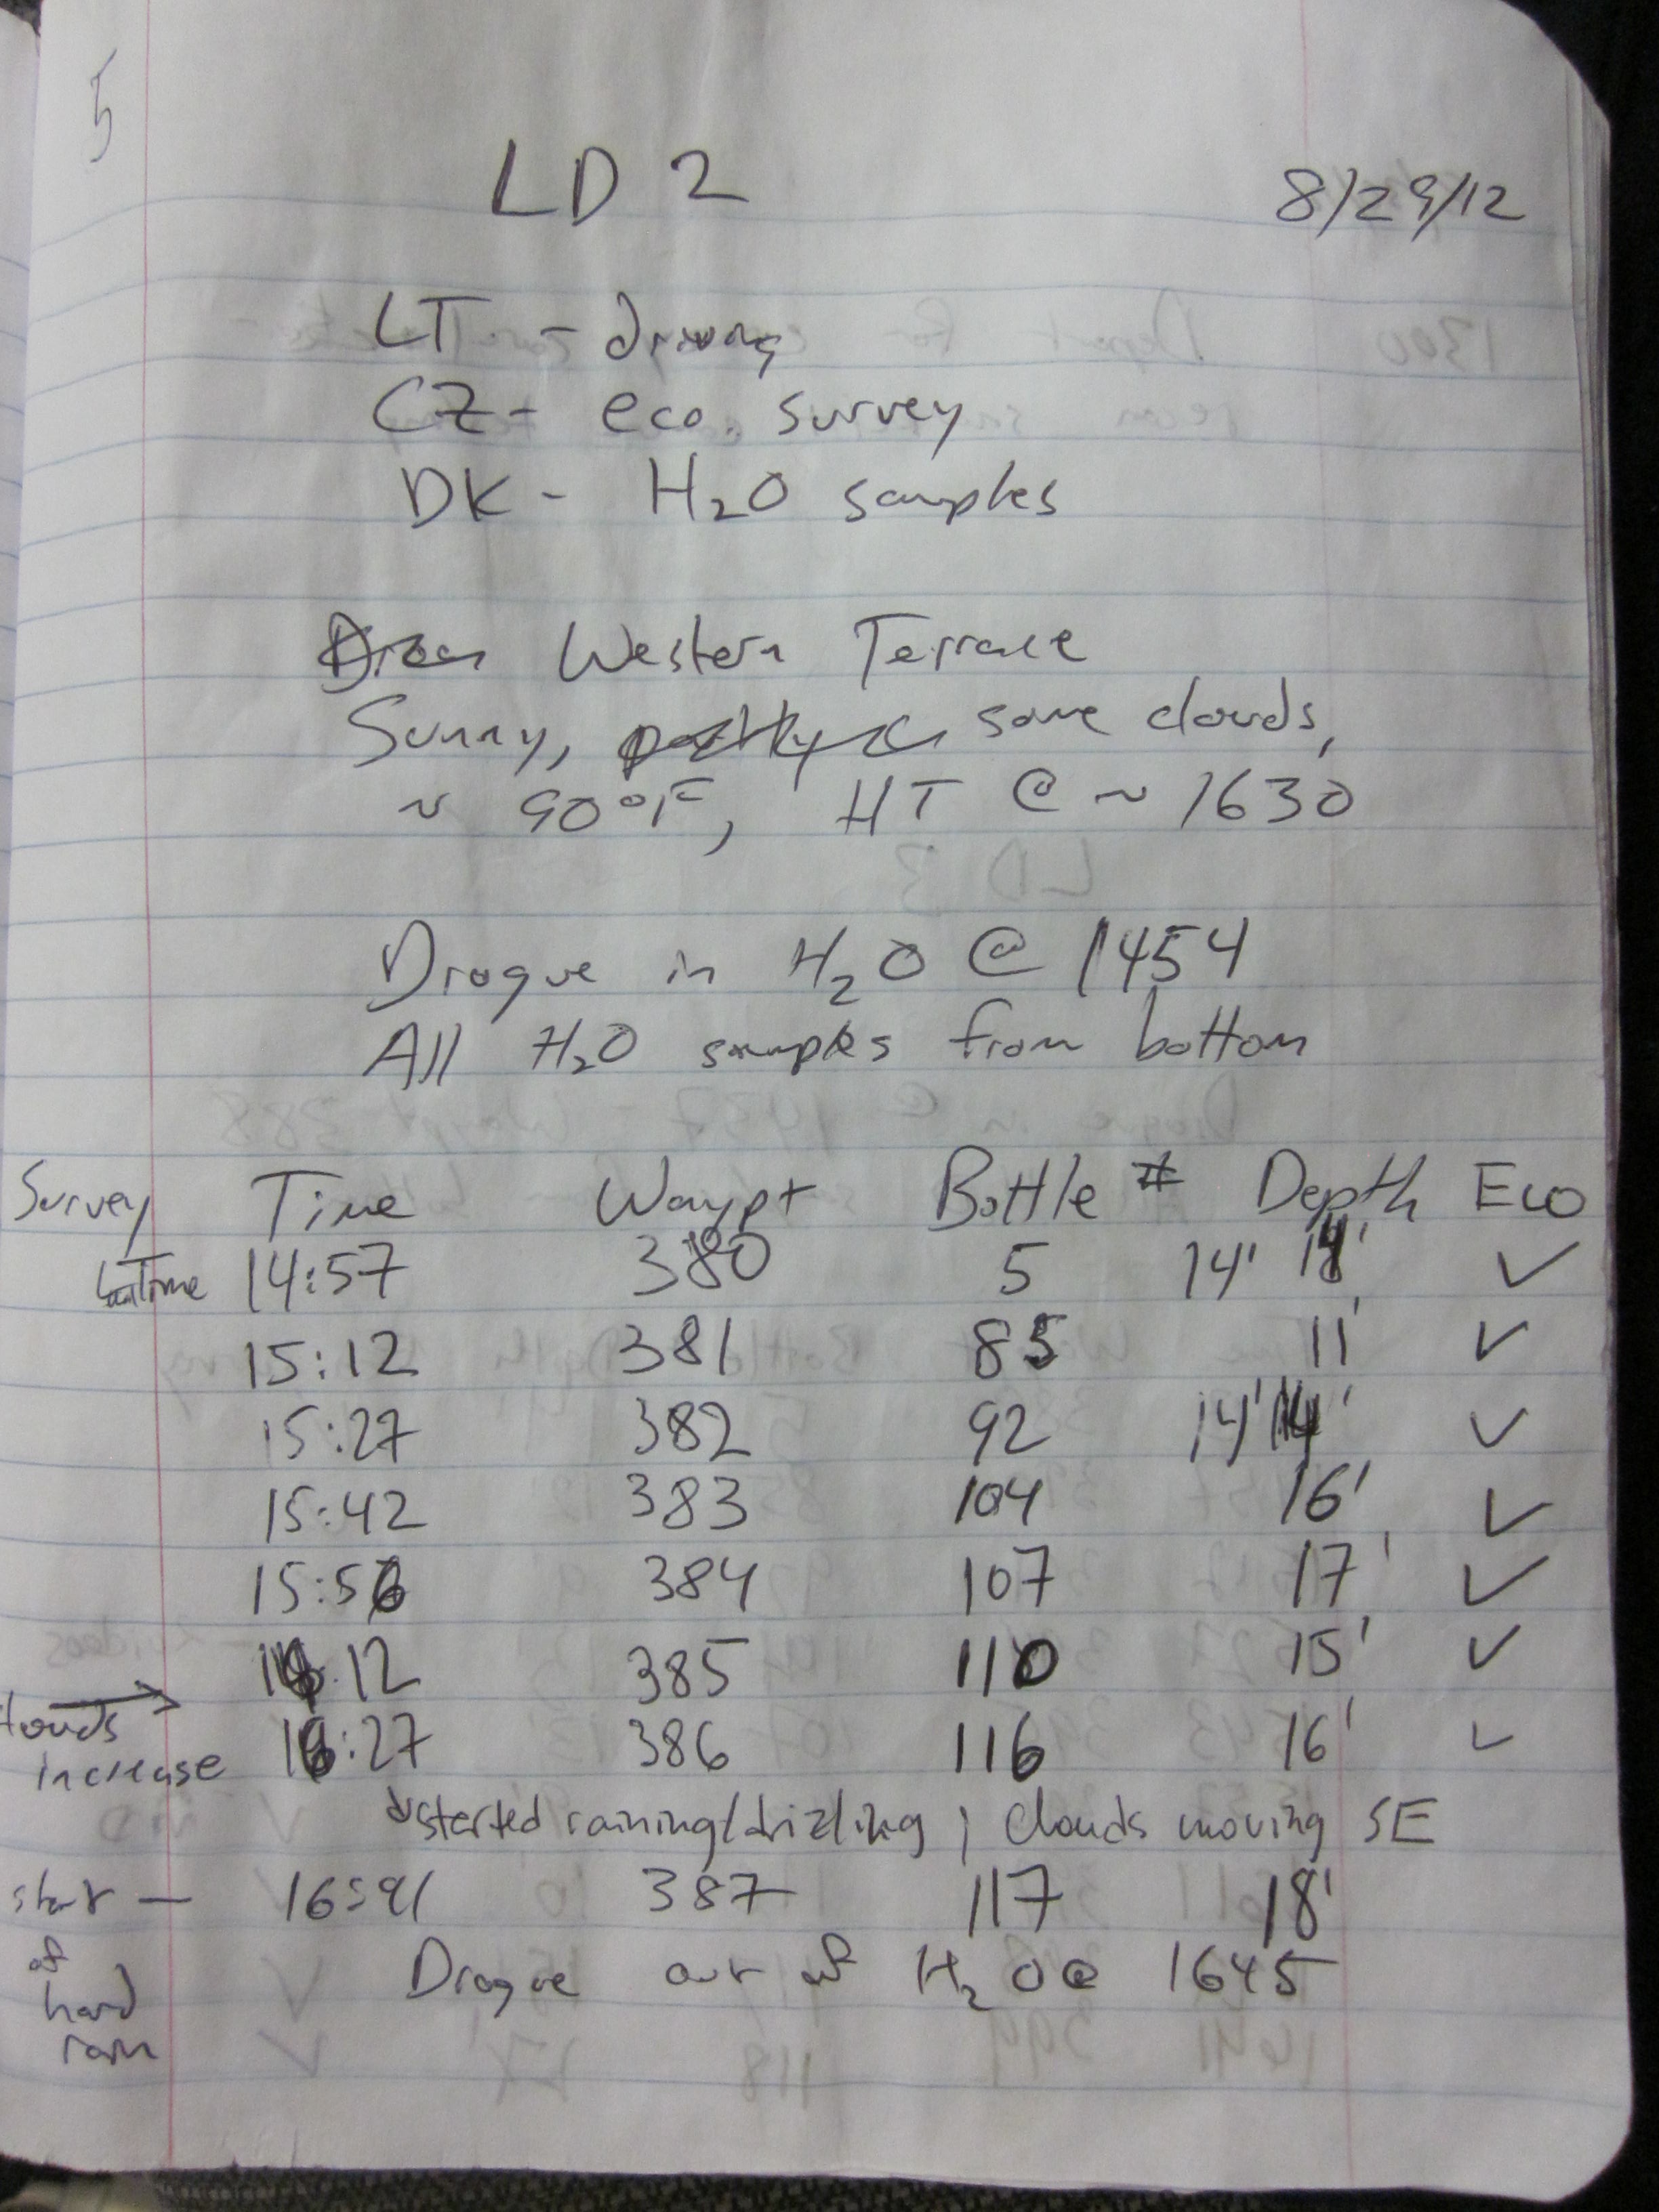 5
LD 2
8/29/12
LT - driving
CZ - eco. survey
DK - H₂O samples
Western Terrace
Sunny, some clouds,
~ 90°F, HT @ ~ 1630
Drogue in H₂O @ 1454
All H₂O samples from bottom
Survey Time Waypt Bottle # Depth Eco
Time 14:57 380 5 14' ✓
15:12 381 85 11' ✓
15:27 382 92 14' ✓
15:42 383 104 16' ✓
15:56 384 107 17' ✓
16:12 385 110 15' ✓
clouds → increase
16:27 386 116 16' ✓
started raining/drizling ; clouds moving SE
start — 16:41 387 117 18'
of
hard
rain
Drogue out of H₂O @ 1645